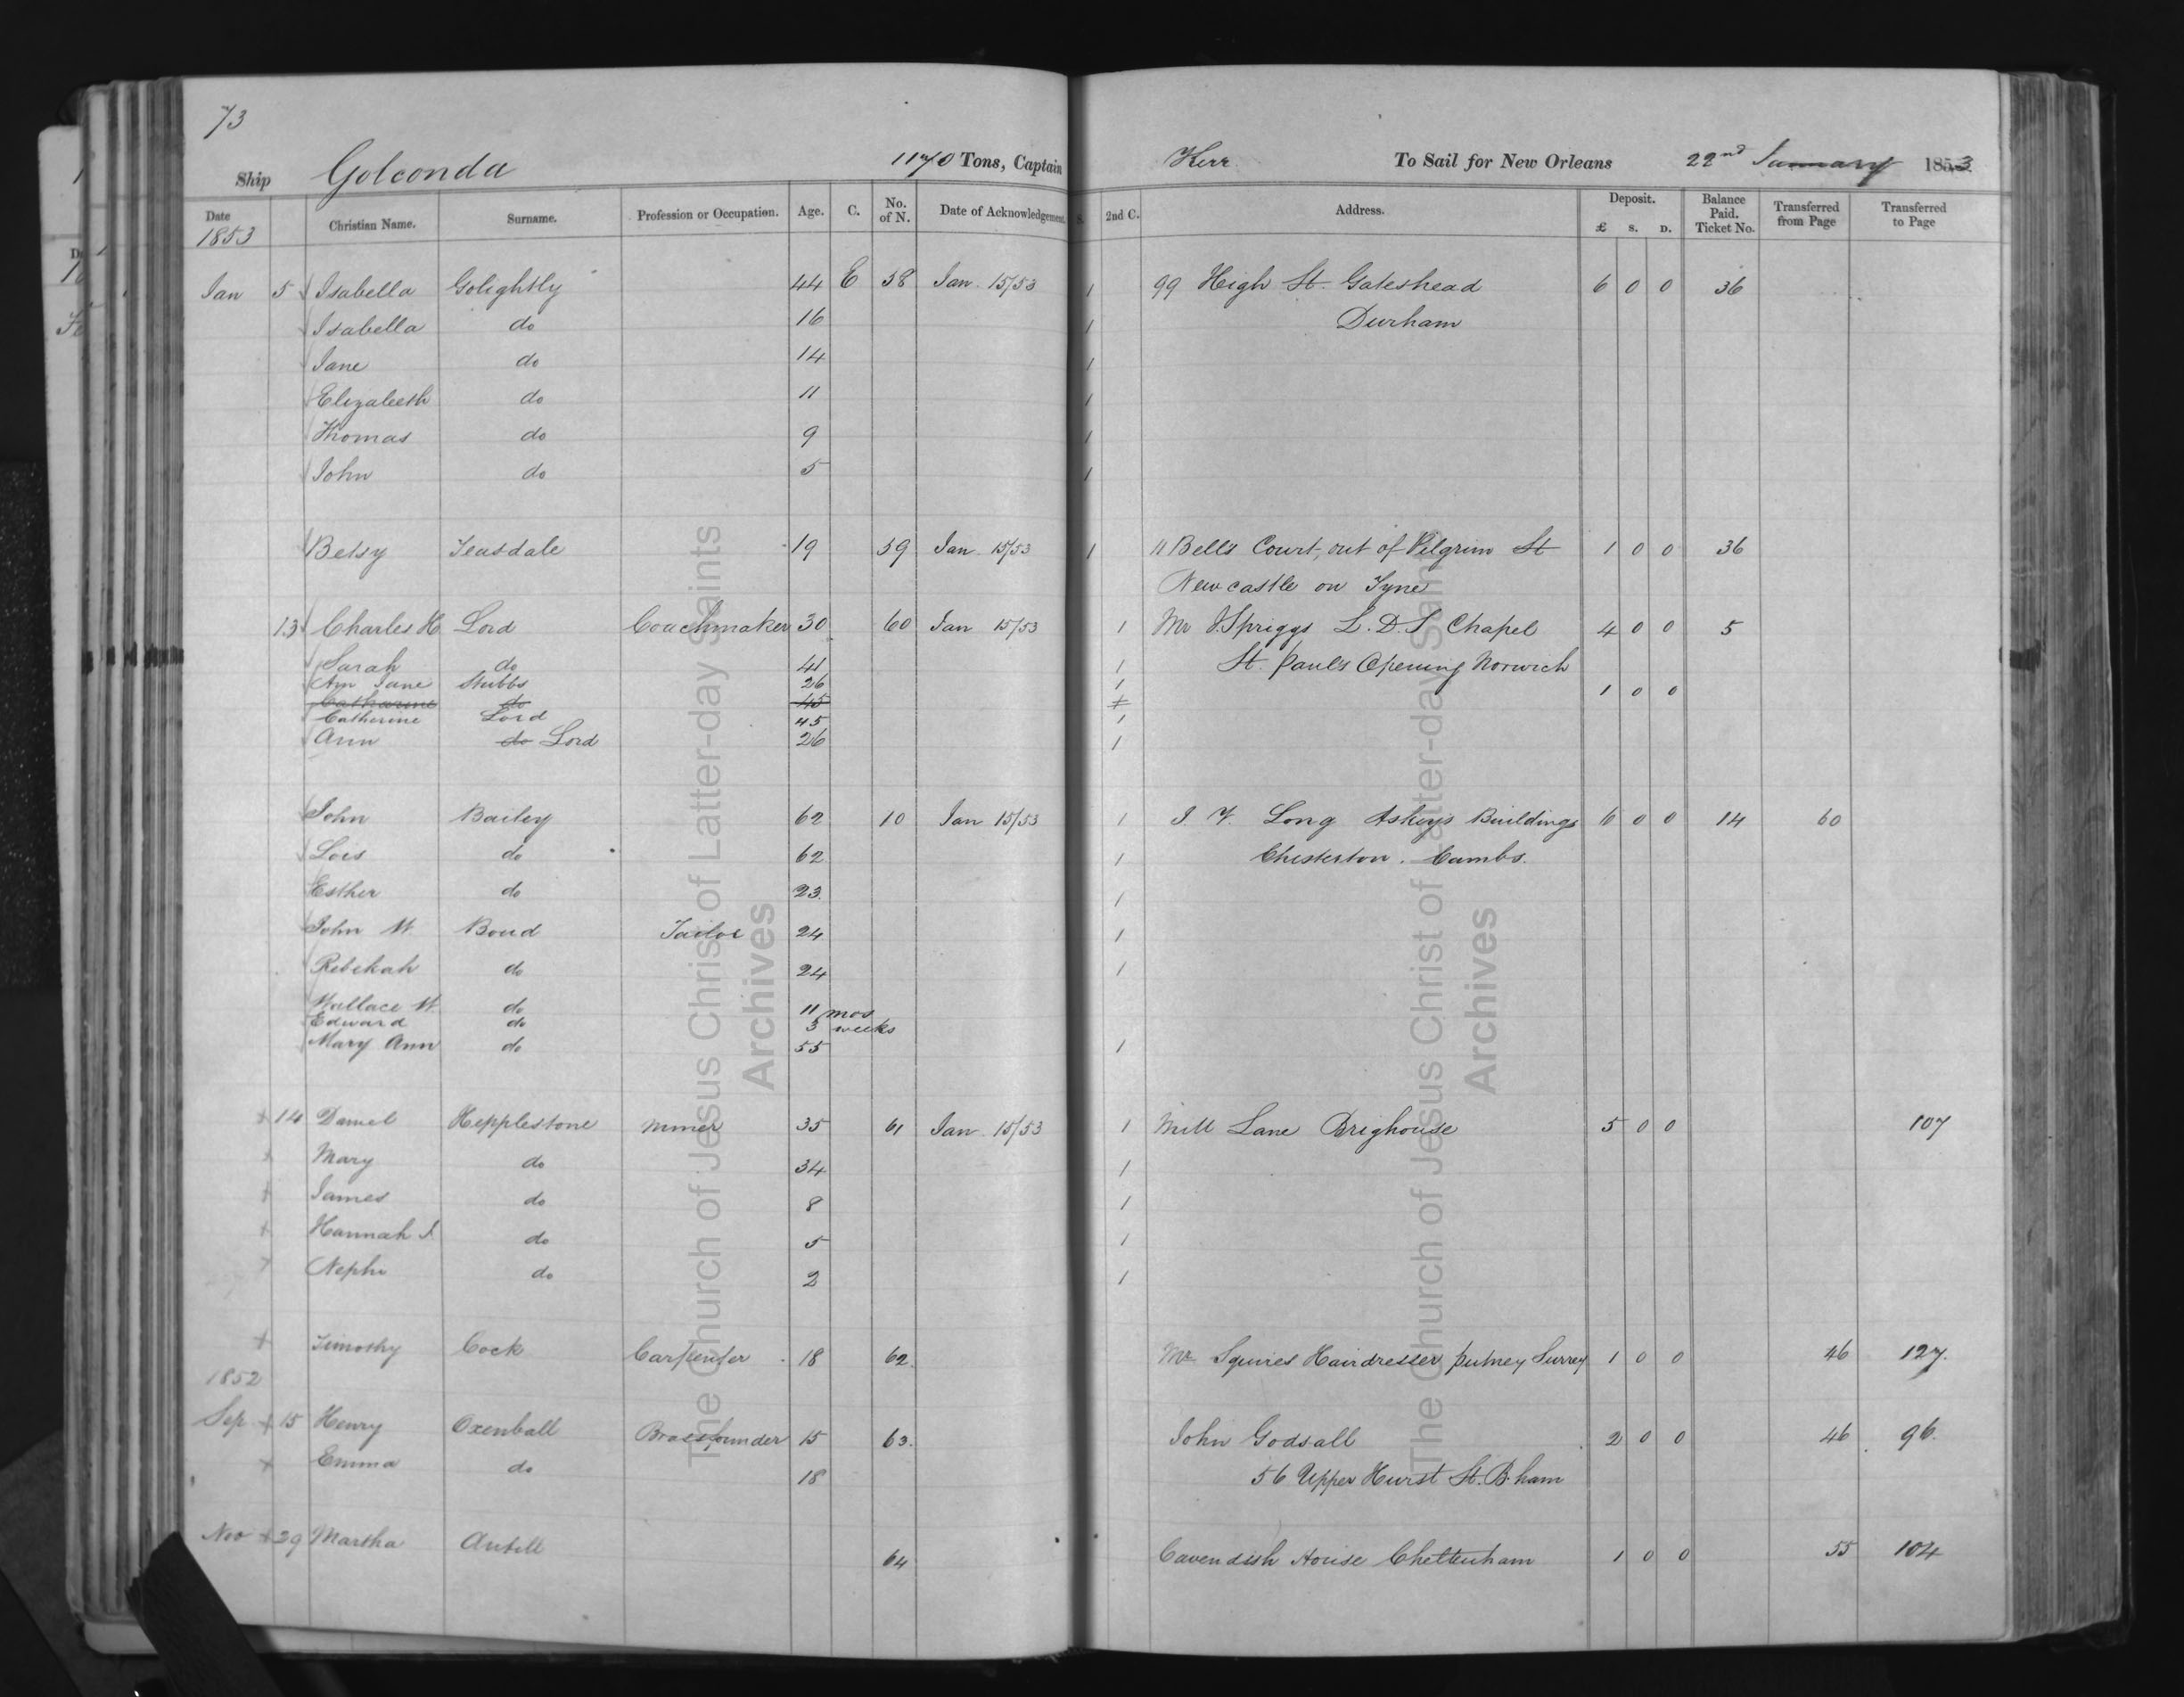 73
Ship Golconda 1170 Tons, Captain Kerr To Sail for New Orleans 22nd January 1853
Date 1853 Christian Name. Surname. Profession or Occupation. Age. C. No. of N. Date of Acknowledgement. S. 2nd C. Address. Deposit. £ S. D. Balance Paid. Ticket No. Transferred from Page Transferred to Page
Jan 5 Isabella Golightly 44 E 58 Jan 15/53 1 99 High St. Gateshead 6 0 0 36
Isabella do 16 1 Durham
Jane do 14 1
Elizabeth do 11 1
Thomas do 9 1
John do 5 1
Betsy Teasdale 19 59 Jan 15/53 1 11 Bells Court, out of Pilgrim St 1 0 0 36
Newcastle on Tyne
13 Charles H Lord Coachmaker 30 60 Jan 15/53 1 Mr J. Spriggs L.D.S Chapel 4 0 0 5
Sarah do 41 1 St. Paul's Opening Norwich
Ann Jane Stubbs 26 1 1 0 0
Catharine do 45 1
Catherine Lord 45 1
Ann do Lord 26 1
John Bailey 62 10 Jan 15/53 1 Long Askey's Buildings 6 0 0 14 60
Lois do 62 1 Chesterton. Cambs.
Esther do 23 1
John W. Bond Tailor 24 1
Rebekah do 24 1
Wallace W. do 11 mos
Edward do 3 weeks
Mary Ann do 55 1
14 Daniel Hepplestone Miner 35 61 Jan 15/53 1 Mill Lane Brighouse 5 0 0 107
Mary do 34 1
James do 8 1
Hannah S do 5 1
Nephi do 2 1
Timothy Cock Carpenter 18 62 Mr Squires Hairdresser, Putney Surrey 1 0 0 46 127.
1852
Sep 15 Henry Oxenball Brassfounder 15 63. John Godsall 2 0 0 46 96.
Emma do 18 56 Upper Hurst St. B.ham
Nov 29 Martha Antill 64 Cavendish House Cheltenham 1 0 0 55 104
The Church of Jesus Christ of Latter-day Saints
Archives
The Church of Jesus Christ of Latter-day Saints
Archives